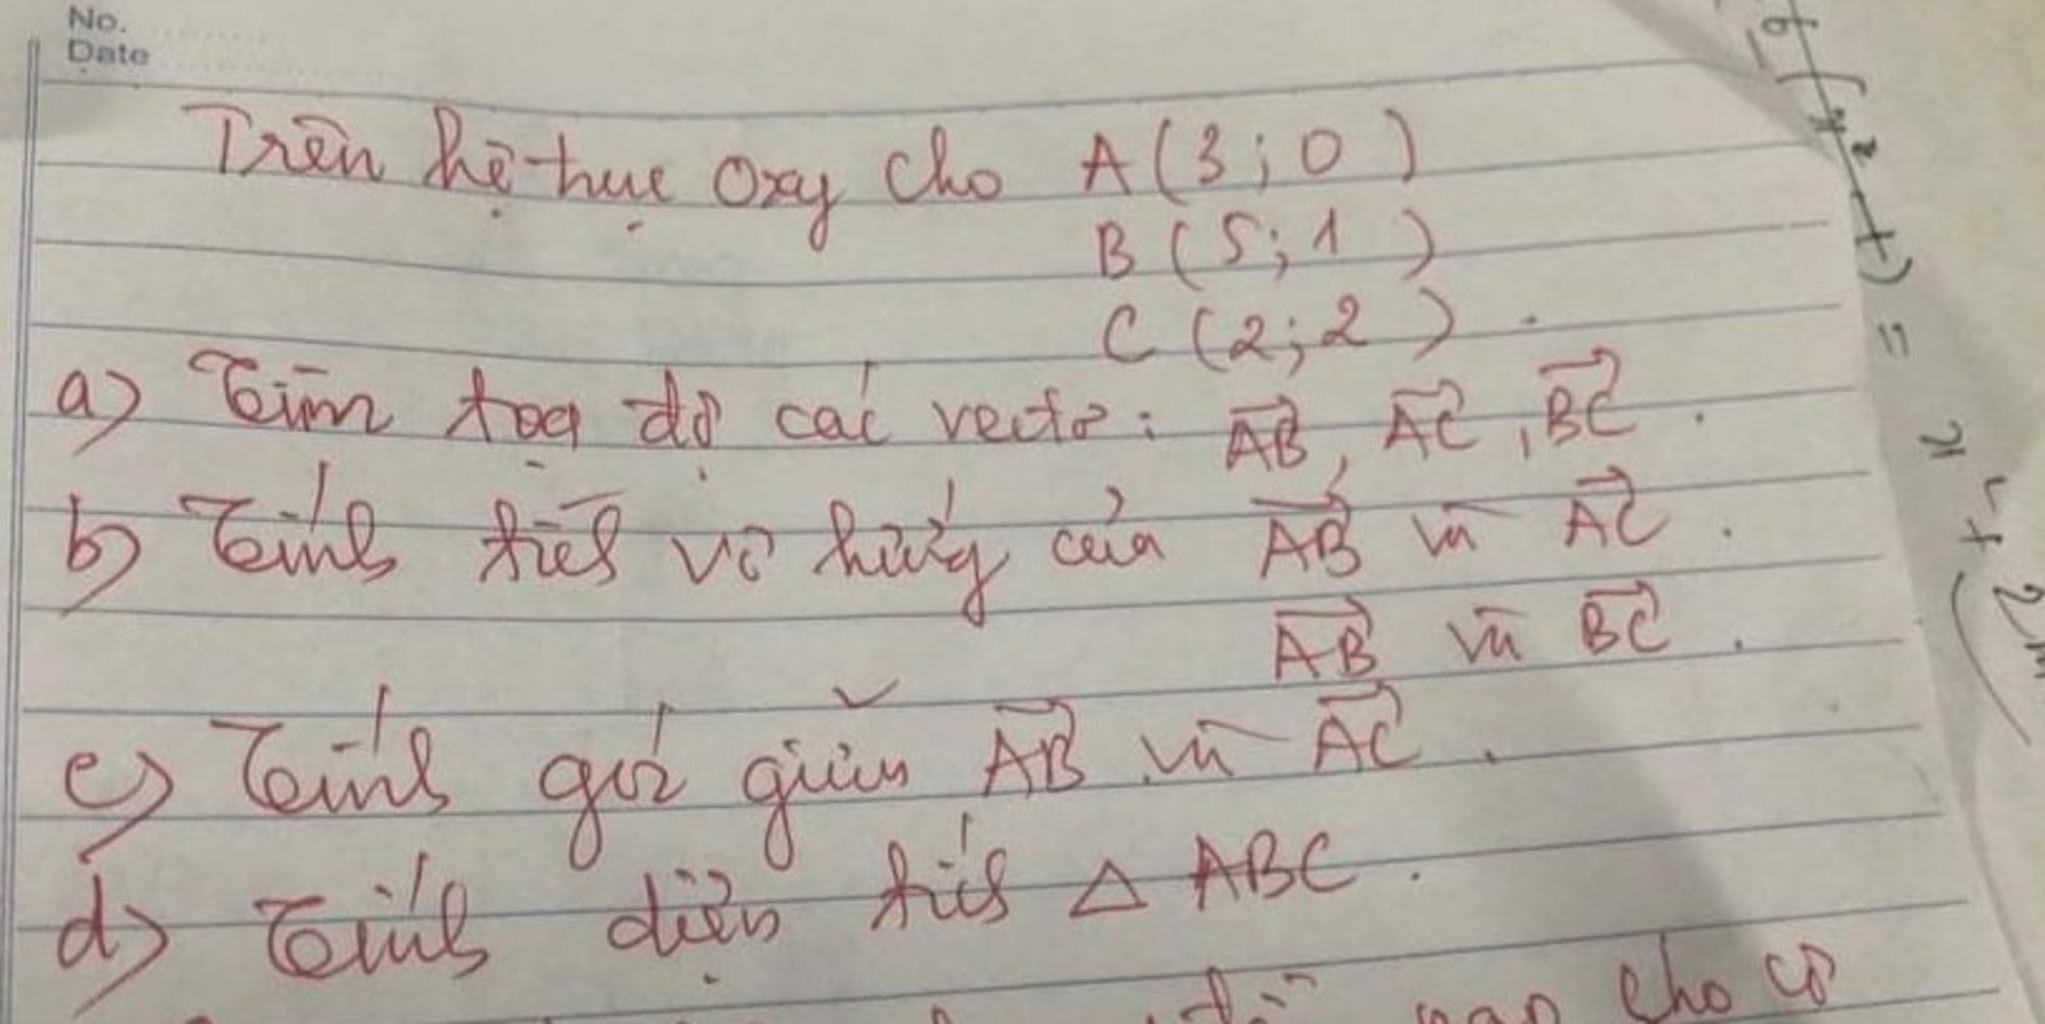 No.
Date
Trên hệ trục Oxy cho A(3;0)
B(5;1)
C(2;2).
a) Tìm tọa độ các vectơ: \overrightarrow{AB}, \overrightarrow{AC}, \overrightarrow{BC}.
b) Tính tích vô hướng của \overrightarrow{AB} và \overrightarrow{AC}.
\overrightarrow{AB} và \overrightarrow{BC}.
c) Tính góc giữa \overrightarrow{AB} và \overrightarrow{AC}.
d) Tính diện tích △ABC.
cho